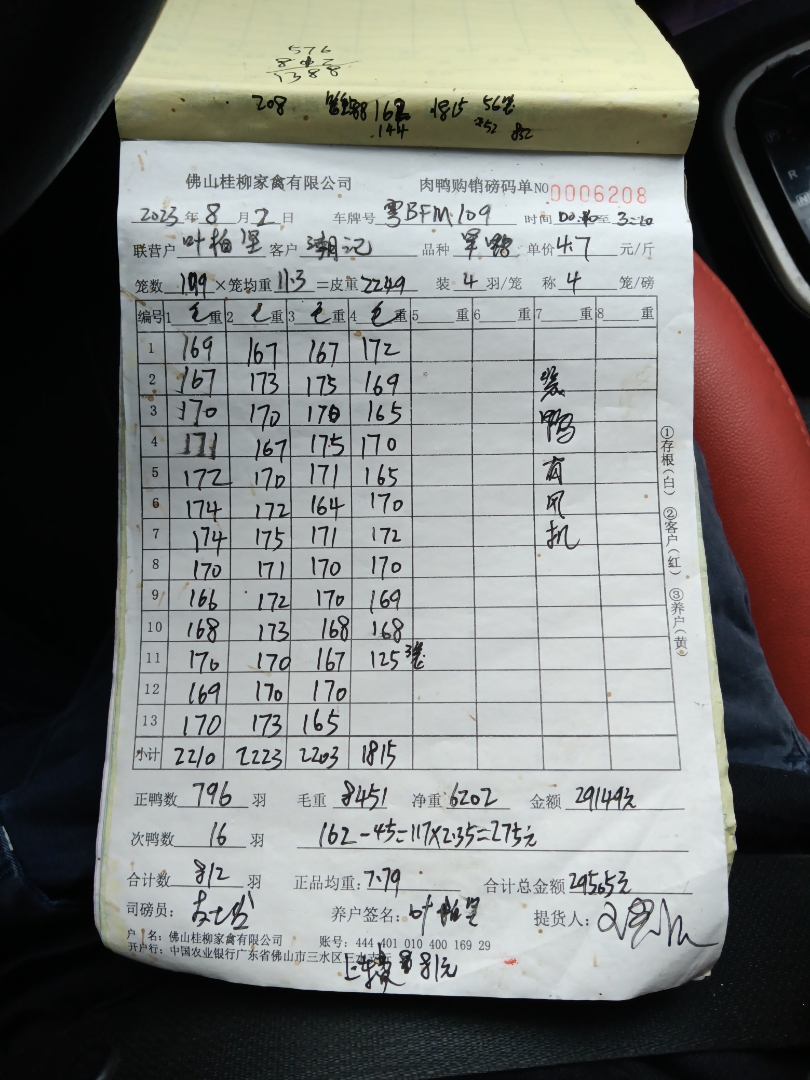 576
812
1388
208 162 1815
144 252 852
佛山桂柳家禽有限公司 肉鸭购销磅码单 NO 0006208
2023年8月2日 车牌号 粤BFM109 时间 至 3:20
联营户 叶柏里 客户 潮记 品种 单价 4.7 元/斤
笼数 199 ×笼均重 11.3 =皮重 2249 装 4 羽/笼 称 4 笼/磅
编号 1 毛重 2 毛重 3 毛重 4 毛重 5 重 6 重 7 重 8 重
1 169 167 167 172
2 167 173 175 169 装
3 170 170 170 165 鸭
4 171 167 175 170
5 172 170 171 165 有
6 174 172 164 170 风
7 174 175 171 172 机
8 170 171 170 170
9 166 172 170 169
10 168 173 168 168
11 170 170 167 125 3笼
12 169 170 170
13 170 173 165
小计 2210 2223 2203 1815
正鸭数 796 羽 毛重 8451 净重 6202 金额 29149元
次鸭数 16 羽 162-45=117×2.35=275元
合计数 812 羽 正品均重: 7.79 合计总金额 29565元
司磅员: 养户签名: 叶柏里 提货人:
户 名: 佛山桂柳家禽有限公司 账号: 444 401 010 400 169 29
开户行: 中国农业银行广东省佛山市三水区三水支行
81元
①存根(白) ②客户(红) ③养户(黄)